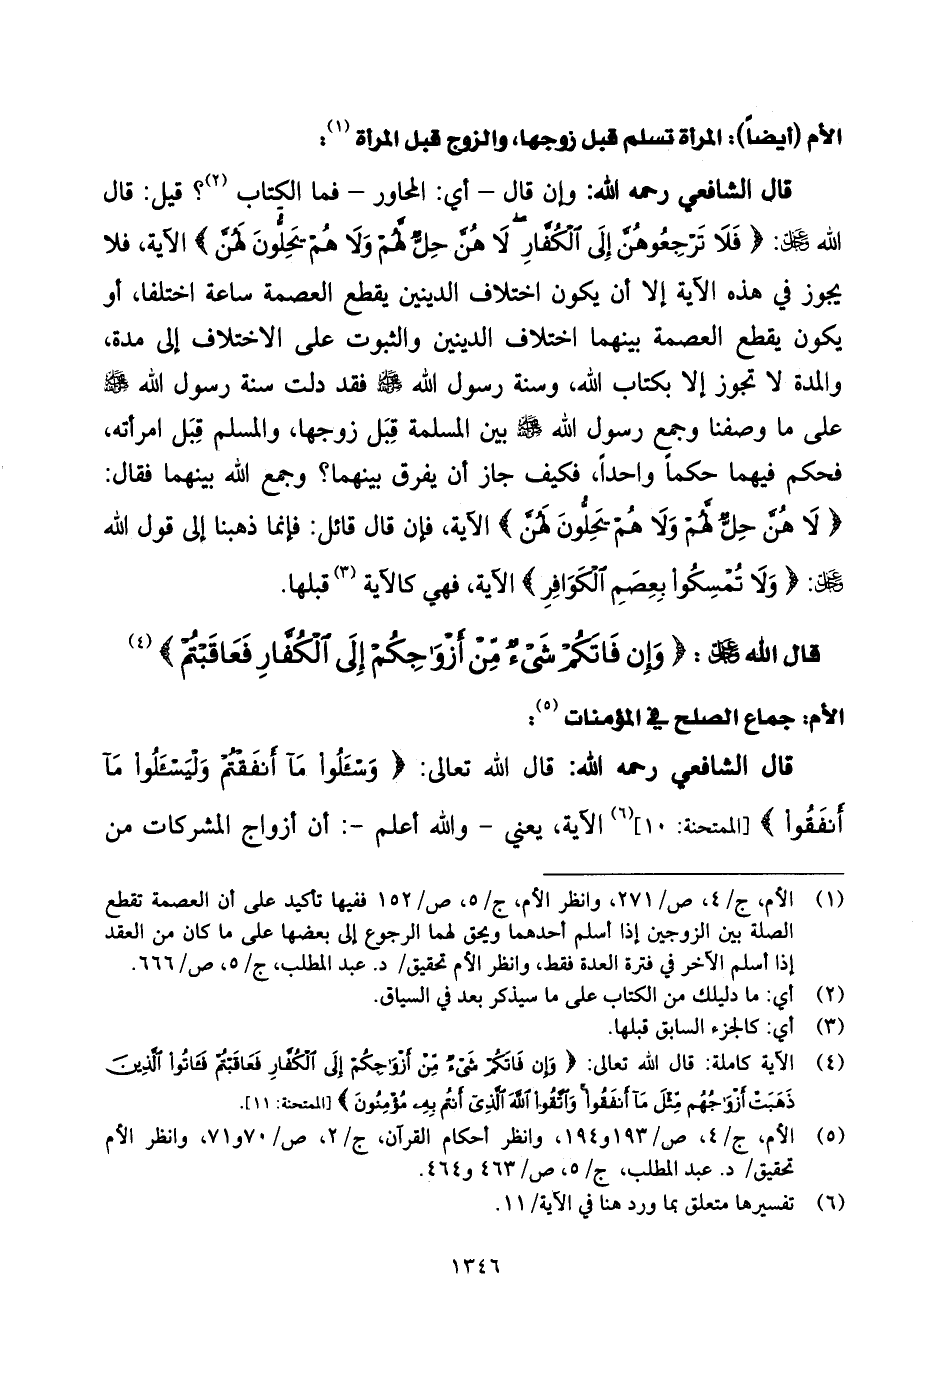 الأم (أيضاً): المرأة تسلم قبل زوجها، والزوج قبل المرأة (١):
قال الشافعي رحمه الله: وإن قال – أي: المحاور – فما الكتاب (٢)؟ قيل: قال
الله ﷻ: ﴿ فَلَا تَرْجِعُوهُنَّ إِلَى ٱلْكُفَّارِ ۖ لَا هُنَّ حِلٌّ لَّهُمْ وَلَا هُمْ يَحِلُّونَ لَهُنَّ ﴾ الآية، فلا
يجوز في هذه الآية إلا أن يكون اختلاف الدينين يقطع العصمة ساعة اختلفا، أو
يكون يقطع العصمة بينهما اختلاف الدينين والثبوت على الاختلاف إلى مدة،
والمدة لا تجوز إلا بكتاب الله، وسنة رسول الله ﷺ فقد دلت سنة رسول الله ﷺ
على ما وصفنا وجمع رسول الله ﷺ بين المسلمة قِبَل زوجها، والمسلم قِبَل امرأته،
فحكم فيهما حكماً واحداً، فكيف جاز أن يفرق بينهما؟ وجمع الله بينهما فقال:
﴿ لَا هُنَّ حِلٌّ لَّهُمْ وَلَا هُمْ يَحِلُّونَ لَهُنَّ ﴾ الآية، فإن قال قائل: فإنما ذهبنا إلى قول الله
ﷻ: ﴿ وَلَا تُمْسِكُوا۟ بِعِصَمِ ٱلْكَوَافِرِ ﴾ الآية، فهي كالآية (٣) قبلها.
قال الله ﷻ : ﴿ وَإِن فَاتَكُمْ شَىْءٌ مِّنْ أَزْوَٰجِكُمْ إِلَى ٱلْكُفَّارِ فَعَاقَبْتُمْ ﴾ (٤)
الأم: جماع الصلح في المؤمنات (٥):
قال الشافعي رحمه الله: قال الله تعالى: ﴿ وَسْـَٔلُوا۟ مَآ أَنفَقْتُمْ وَلْيَسْـَٔلُوا۟ مَآ
أَنفَقُوا۟ ﴾ [الممتحنة: ١٠](٦) الآية، يعني – والله أعلم –: أن أزواج المشركات من
(١) الأم، ج/ ٤، ص/ ٢٧١، وانظر الأم، ج/ ٥، ص/ ١٥٢ ففيها تأكيد على أن العصمة تقطع
الصلة بين الزوجين إذا أسلم أحدهما ويحق لهما الرجوع إلى بعضها على ما كان من العقد
إذا أسلم الآخر في فترة العدة فقط، وانظر الأم تحقيق/ د. عبد المطلب، ج/ ٥، ص/ ٦٦٦.
(٢) أي: ما دليلك من الكتاب على ما سيذكر بعد في السياق.
(٣) أي: كالجزء السابق قبلها.
(٤) الآية كاملة: قال الله تعالى: ﴿ وَإِن فَاتَكُمْ شَىْءٌ مِّنْ أَزْوَٰجِكُمْ إِلَى ٱلْكُفَّارِ فَعَاقَبْتُمْ فَـَٔاتُوا۟ ٱلَّذِينَ
ذَهَبَتْ أَزْوَٰجُهُم مِّثْلَ مَآ أَنفَقُوا۟ ۚ وَٱتَّقُوا۟ ٱللَّهَ ٱلَّذِىٓ أَنتُم بِهِۦ مُؤْمِنُونَ ﴾ [الممتحنة: ١١].
(٥) الأم، ج/ ٤، ص/ ١٩٣و١٩٤، وانظر أحكام القرآن، ج/ ٢، ص/ ٧٠و٧١، وانظر الأم
تحقيق/ د. عبد المطلب، ج/ ٥، ص/ ٤٦٣ و٤٦٤.
(٦) تفسيرها متعلق بما ورد هنا في الآية/ ١١.
١٣٤٦